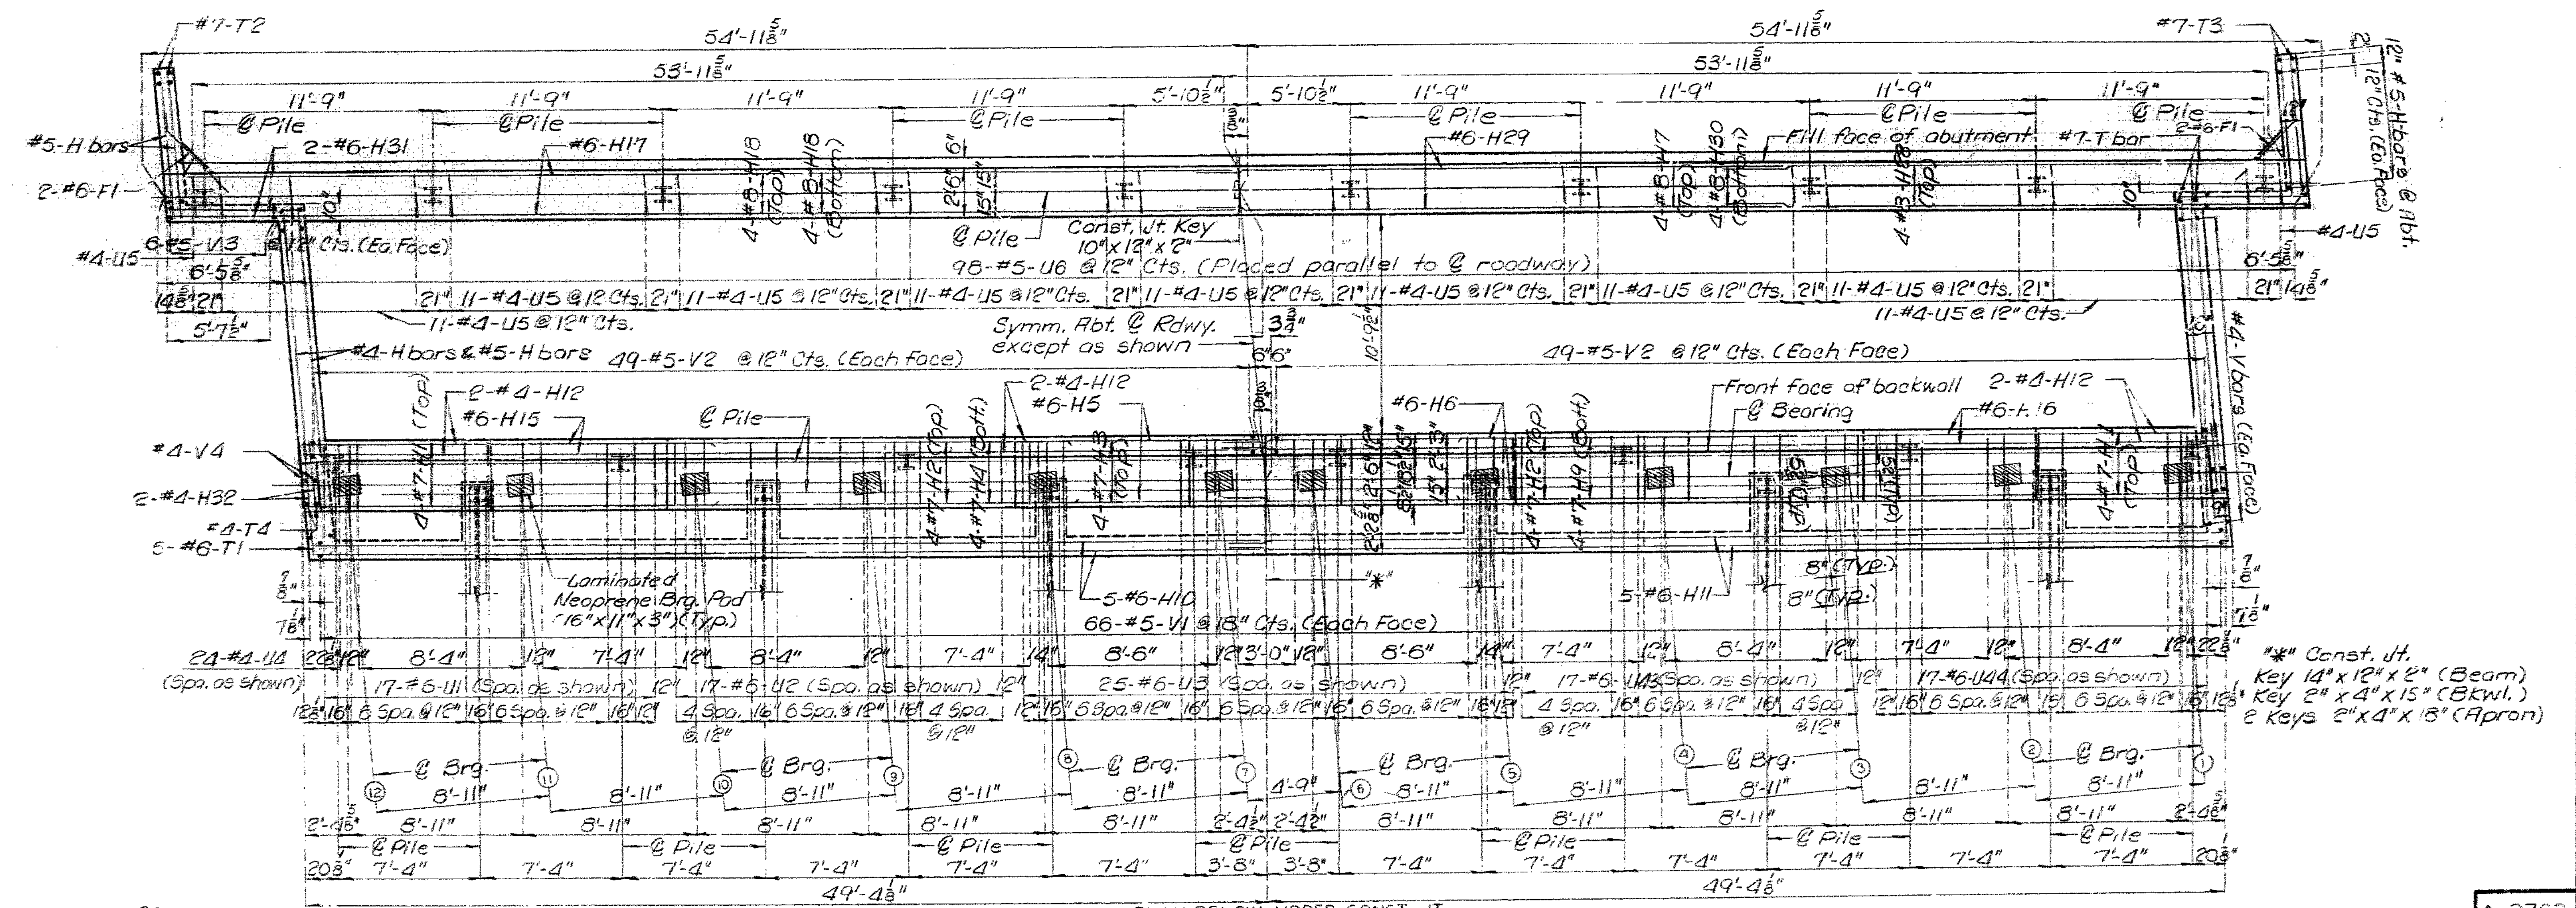 #7-T2
54'-11 5/8"
54'-11 5/8"
#7-T3
53'-11 5/8"
53'-11 5/8"
2"
12" #5-H bars @ Abt.
12" Cts. (Ea. Face)
11'-9"
11'-9"
11'-9"
11'-9"
5'-10 1/2"
5'-10 1/2"
11'-9"
11'-9"
11'-9"
11'-9"
℄ Pile
℄ Pile
℄ Pile
℄ Pile
℄ Pile
℄ Pile
12"
#5-H bars
2-#6-H31
#6-H17
#6-H29
Fill face of abutment
#7-T bar
2-#6-F1
2-#6-F1
10"
4-#8-H18
(Top)
4-#8-H18
(Bottom)
2'-6" 6"
15" 15"
4-#8-H17
(Top)
4-#8-H30
(Bottom)
(Top)
10"
℄ Pile
Const. Jt. Key
10" x 12" x 2"
6-#5-V3 @ 12" Cts. (Ea. Face)
#4-U5
#4-U5
98-#5-U6 @ 12" Cts. (Placed parallel to ℄ roadway)
6'-5 5/8"
6'-5 5/8"
14 5/8" 21"
21" 11-#4-U5 @ 12" Cts. 21" 11-#4-U5 @ 12" Cts. 21" 11-#4-U5 @ 12" Cts. 21" 11-#4-U5 @ 12" Cts. 21" 11-#4-U5 @ 12" Cts. 21" 11-#4-U5 @ 12" Cts. 21" 11-#4-U5 @ 12" Cts. 21"
21" 14 5/8"
11-#4-U5 @ 12" Cts.
11-#4-U5 @ 12" Cts.
5'-7 1/2"
Symm. Abt. ℄ Rdwy.
except as shown
3 3/4"
10'-9 1/2"
#4-H bars & #5-H bars
49-#5-V2 @ 12" Cts. (Each Face)
6" 6"
49-#5-V2 @ 12" Cts. (Each Face)
#4-V bars (Ea. Face)
2-#4-H12
#6-H15
℄ Pile
2-#4-H12
#6-H5
#6-H6
Front face of backwall
℄ Bearing
2-#4-H12
#4-V4
2-#4-H32
#4-T4
5-#6-T1
4-#7-H1 (Top)
4-#7-H2 (Top)
4-#7-H4 (Bott.)
4-#7-H3
(Top)
2'-2 5/8" 2'-6" 12"
15" 2'-3"
4-#7-H2 (Top)
4-#7-H9 (Bott.)
5 1/2" (Typ.)
5 1/2" (Typ.)
4-#7-H1
(Top)
Laminated
Neoprene Brg. Pad
16" x 11" x 3" (Typ.)
"*"
5-#6-H10
5-#6-H11
8" (Typ.)
8" (Typ.)
7/8"
7/8"
7 1/8"
7 1/8"
66-#5-V1 @ 18" Cts. (Each Face)
24-#4-U4
(Spa. as shown)
22 1/8" 12" 8'-4" 12" 7'-4" 12" 8'-4" 12" 7'-4" 14" 8'-6" 12" 3'-0" 12" 8'-6" 14" 7'-4" 12" 8'-4" 12" 7'-4" 12" 8'-4" 12" 22 1/8"
17-#6-U1 (Spa. as shown) 12" 17-#6-U2 (Spa. as shown) 12" 25-#6-U3 (Spa. as shown) 12" 17-#6-U43 (Spa. as shown) 12" 17-#6-U44 (Spa. as shown)
12 1/8" 16" 6 Spa. @ 12" 16" 6 Spa. @ 12" 16" 12" 4 Spa. 16" 6 Spa. @ 12" 16" 4 Spa. 12" 16" 6 Spa. @ 12" 16" 6 Spa. @ 12" 16" 6 Spa. @ 12" 16" 12" 4 Spa. 16" 6 Spa. @ 12" 16" 4 Spa. 12" 16" 6 Spa. @ 12" 16" 6 Spa. @ 12" 16" 12 1/8"
@ 12" @ 12" @ 12" @ 12"
"*" Const. Jt.
Key 14" x 12" x 2" (Beam)
Key 2" x 4" x 15" (Bkwl.)
2 Keys 2" x 4" x 18" (Apron)
℄ Brg. ℄ Brg. ℄ Brg. ℄ Brg. ℄ Brg. ℄ Brg.
12 11 10 9 8 7 6 5 4 3 2 1
8'-11" 8'-11" 8'-11" 8'-11" 8'-11" 4'-9" 8'-11" 8'-11" 8'-11" 8'-11" 8'-11"
2'-4 5/8" 8'-11" 8'-11" 8'-11" 8'-11" 8'-11" 2'-4 1/2" 2'-4 1/2" 8'-11" 8'-11" 8'-11" 8'-11" 8'-11" 2'-4 5/8"
℄ Pile ℄ Pile ℄ Pile ℄ Pile ℄ Pile ℄ Pile ℄ Pile
20 1/8" 7'-4" 7'-4" 7'-4" 7'-4" 7'-4" 7'-4" 3'-8" 3'-8" 7'-4" 7'-4" 7'-4" 7'-4" 7'-4" 7'-4" 20 1/8"
49'-4 1/8"
49'-4 1/8"